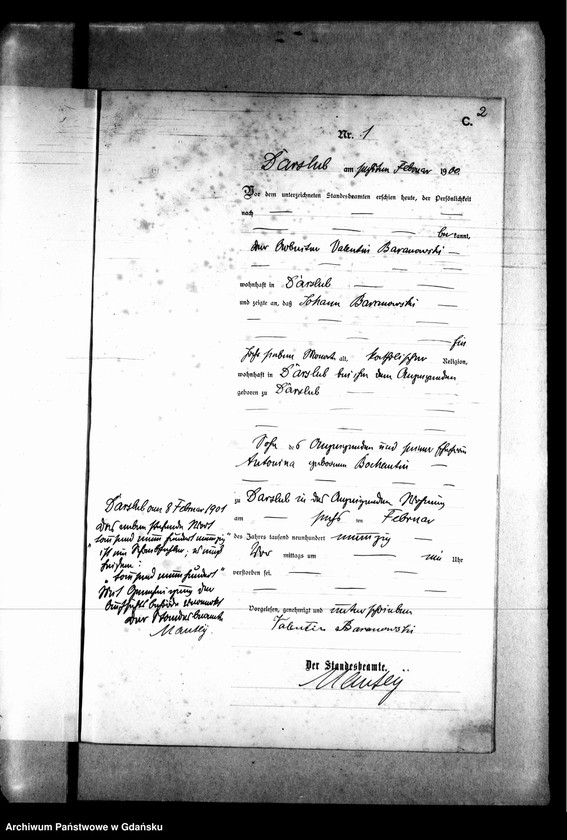 2
C.
Nr. 1
Darslub am sechsten Februar 1900.
Vor dem unterzeichneten Standesbeamten erschien heute, der Persönlichkeit
nach
bekannt,
der Arbeiter Valentin Baranowski
wohnhaft in Darslub
und zeigte an, daß Johann Baranowski
ein
Jahr sieben Monate alt, katholischer Religion,
wohnhaft in Darslub bei ihm dem Anzeigenden
geboren zu Darslub
Sohn des Anzeigenden und seiner Ehefrau
Antonina geborenen Bochentin
zu Darslub in des Anzeigenden Wohnung
am sechs ten Februar
des Jahres tausend neunhundert neunzig
Vor mittags um ein Uhr
verstorben sei.
Vorgelesen, genehmigt und unterschrieben
Valentin Baranowski
Der Standesbeamte.
Mantey
Darslub am 8 Februar 1901
Das neben stehende Wort
tausend neun hundert neunzig
ist ein Schreibfehler; es muß
heißen:
"tausend neunhundert"
Mit Genehmigung der
Aufsichts behörde vermerkt
Der Standesbeamte
Mantey
Archiwum Państwowe w Gdańsku